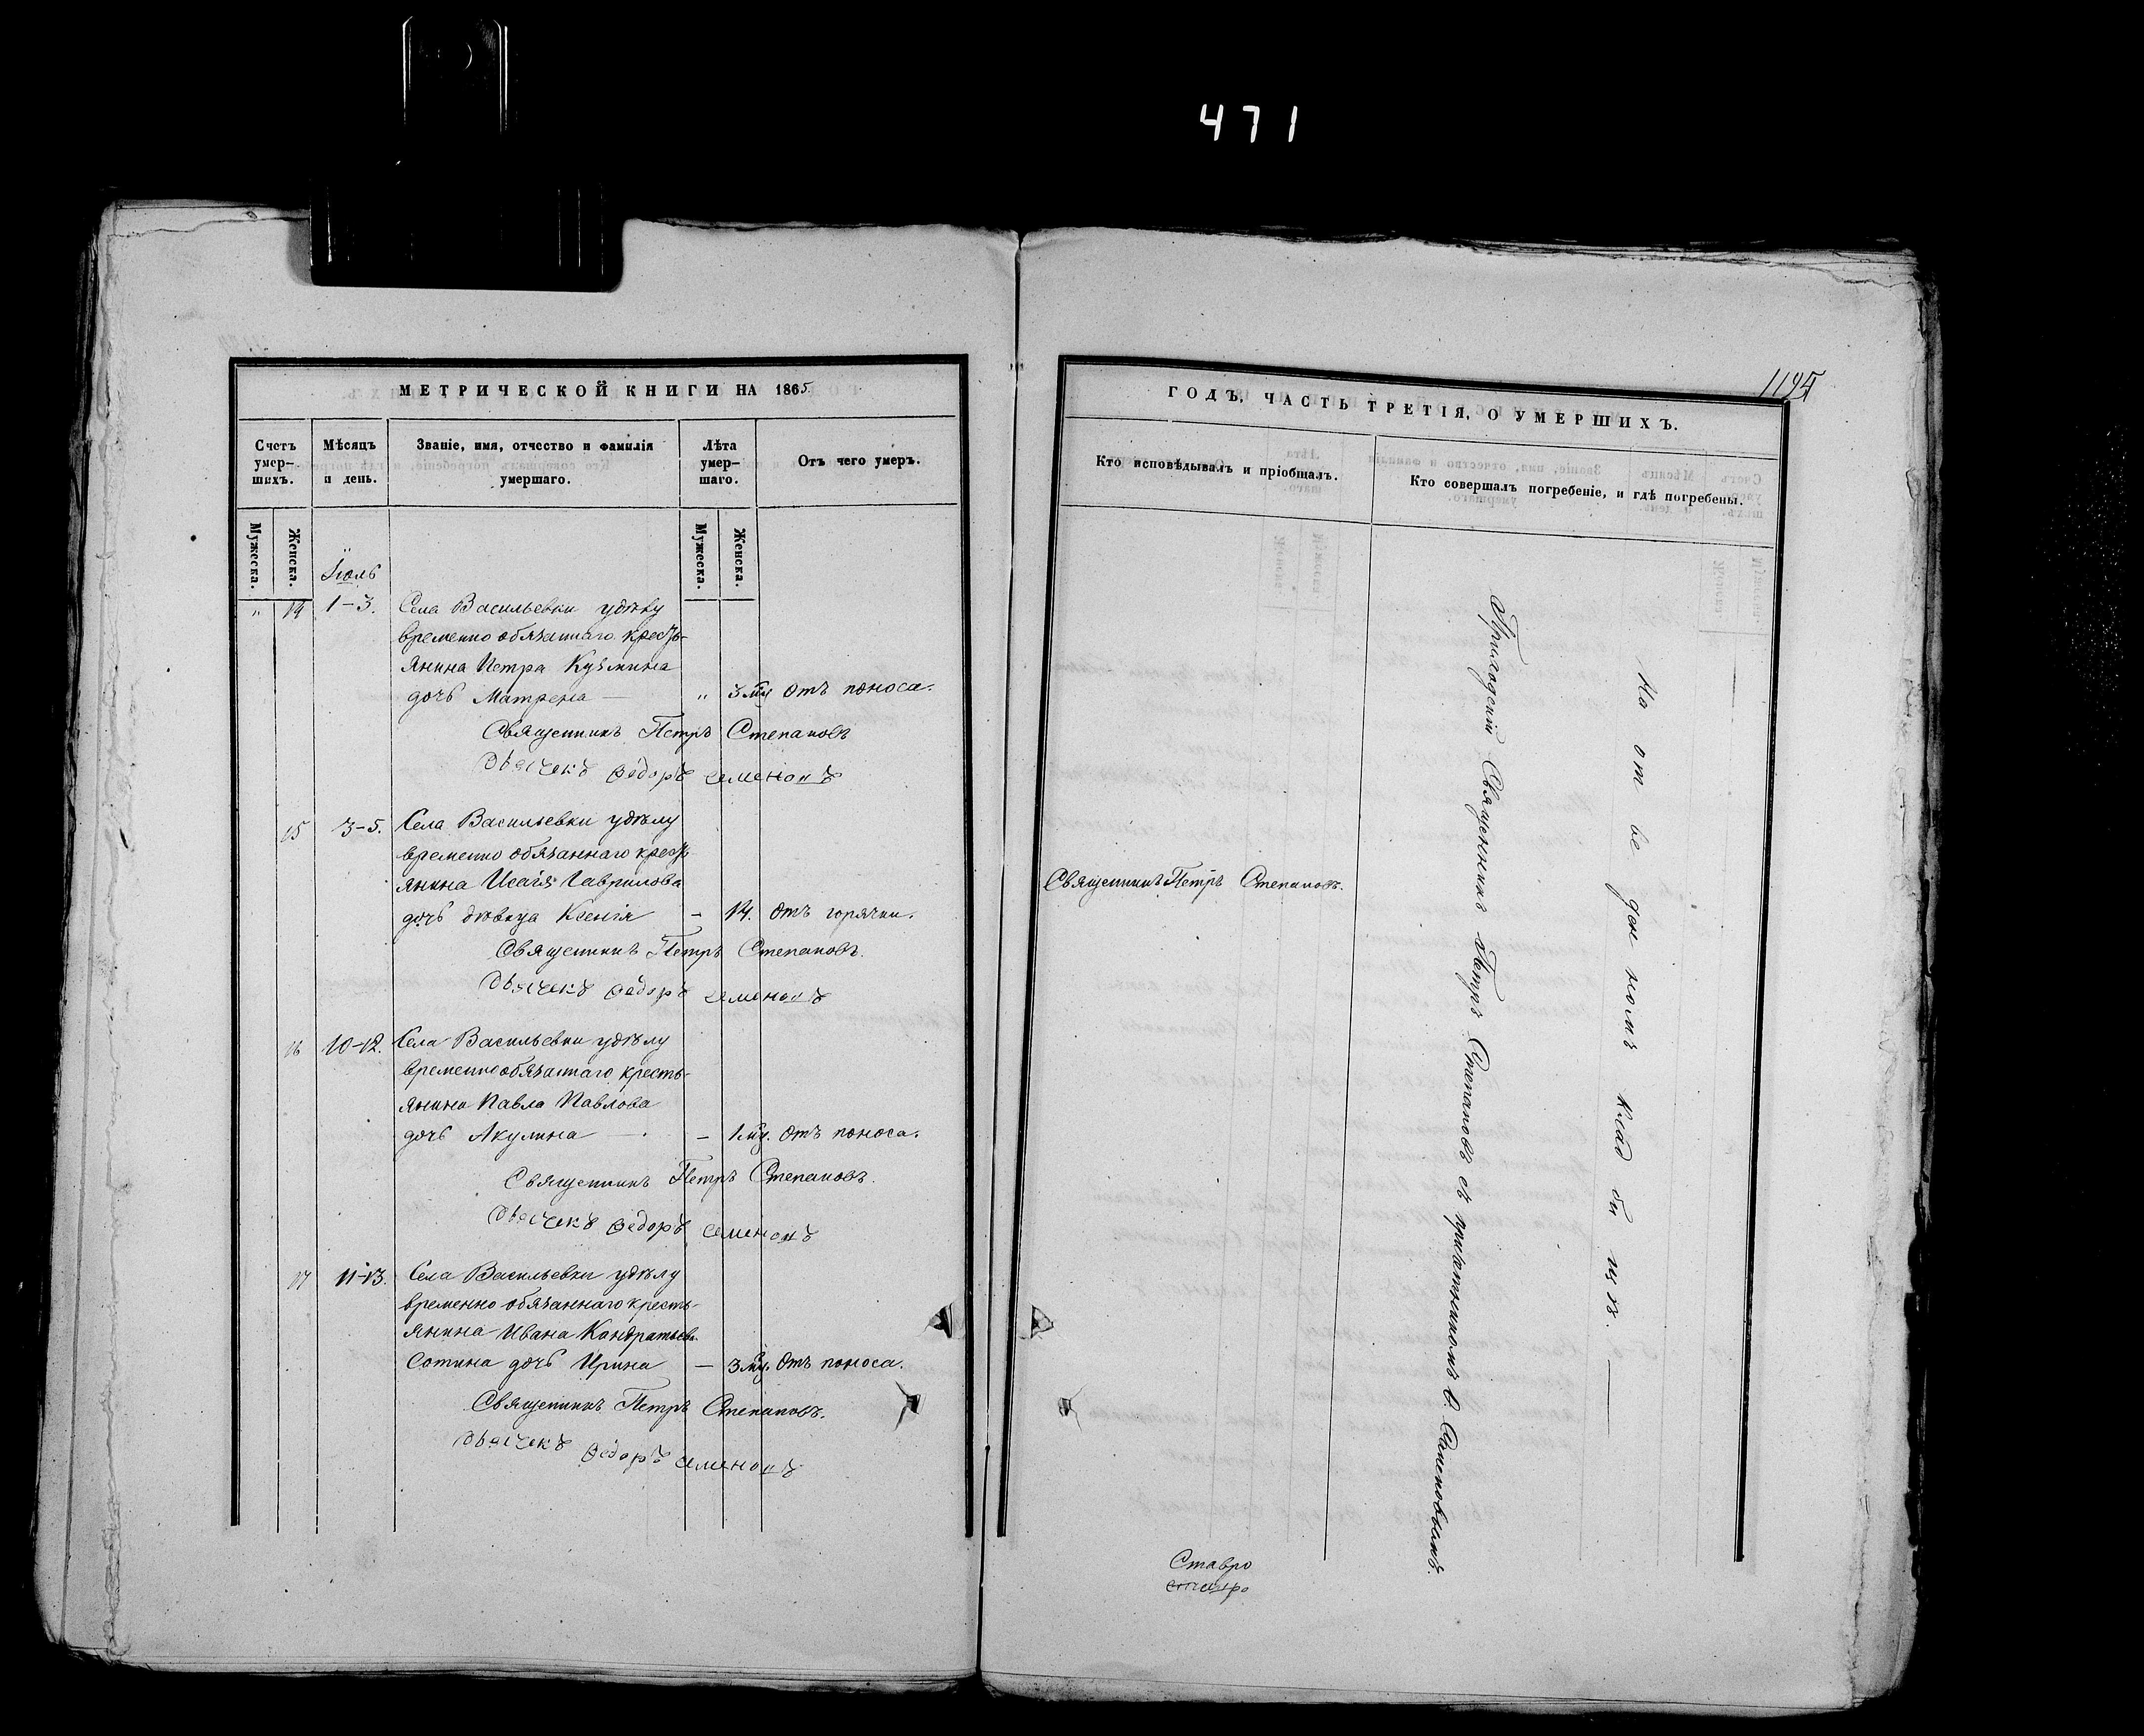 471
МЕТРИЧЕСКОЙ КНИГИ НА 1865.
Счетъ умер-шихъ.
Мѣсяцъ и день.
Званіе, имя, отчество и фамилія умершаго.
Лѣта умер-шаго.
Отъ чего умеръ.
Мужеска.
Женска.
Мужеска.
Женска.
Іюль
" 14 1-3. Села Васильевки удѣлу
временно обязаннаго кресть-
янина Петра Кузмина
дочь Матрена — " 3 мц отъ поноса.
Священникъ Петръ Степановъ
Дьячекъ Ѳедоръ Семеновъ
15 3-5. Села Васильевки удѣлу
временно обязаннаго кресть-
янина Исаія Гаврилова
дочь дѣвица Ксенія – 14. отъ горячки.
Священникъ Петръ Степановъ.
Дьячекъ Ѳедоръ Семеновъ
16 10-12. Села Васильевки удѣлу
временно обязаннаго кресть-
янина Павла Павлова
дочь Акулина — – 1 мц. отъ поноса.
Священникъ Петръ Степановъ.
Дьячекъ Ѳедоръ Семеновъ
17 11-13. Села Васильевки удѣлу
временно обязаннаго кресть-
янина Ивана Кондратьева
Сотина дочь Ирина — 3 мц. отъ поноса.
Священникъ Петръ Степановъ.
Дьячекъ Ѳедоръ Семеновъ
ГОДЪ, ЧАСТЬ ТРЕТІЯ, О УМЕРШИХЪ.
Кто исповѣдывалъ и пріобщалъ.
Кто совершалъ погребеніе, и гдѣ погребены.
Священникъ Петръ Степановъ.
Приходскій Священникъ Петръ Степановъ съ причетникомъ Ѳ. Семеновымъ.
На от ве ден номъ клад би щѣ. —
Ставро